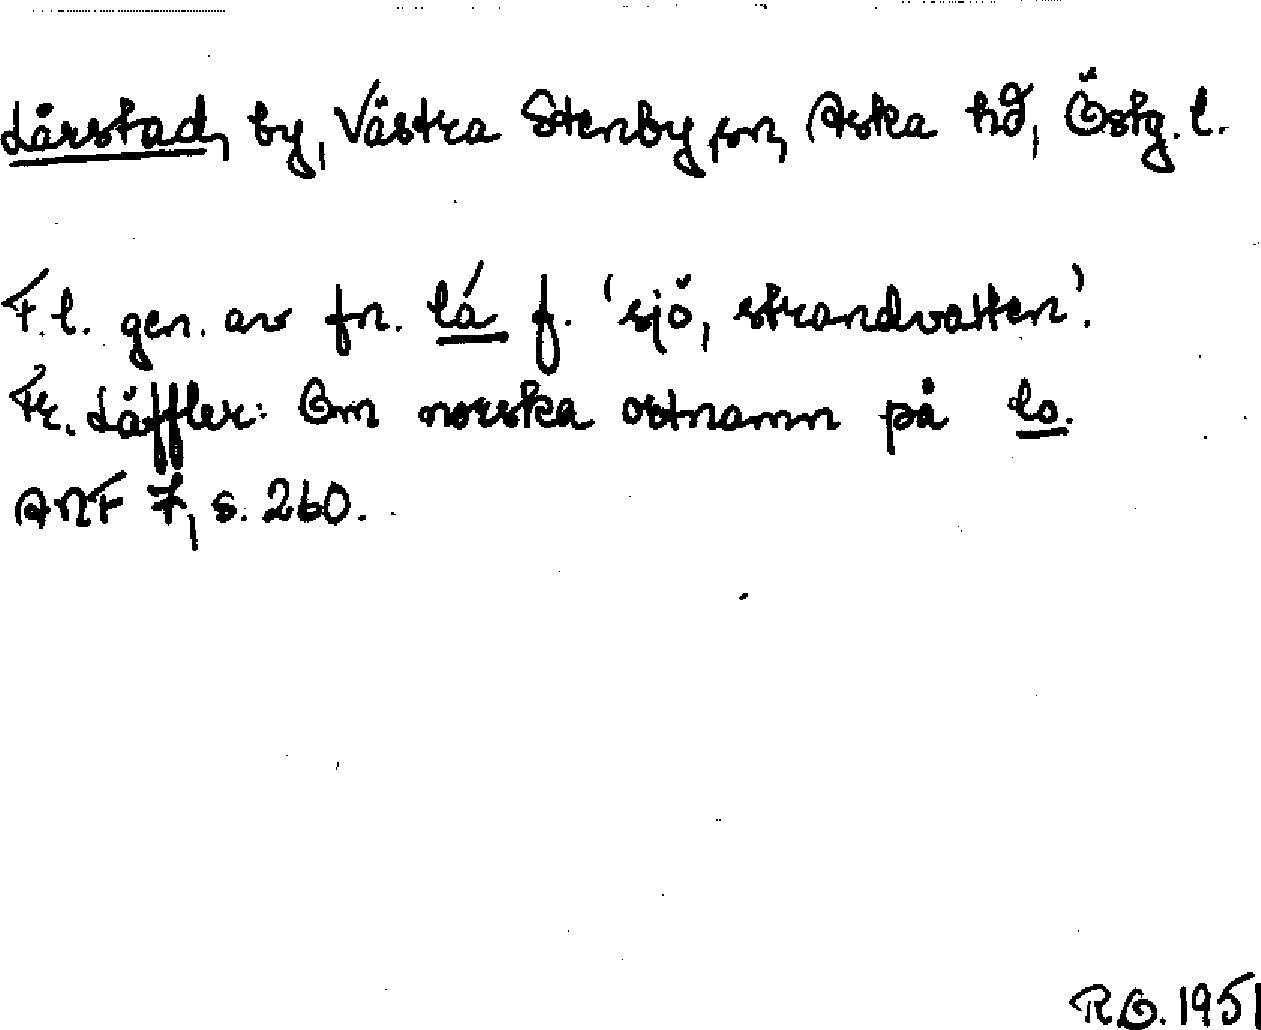 Lårstad, by, Västra Stenby sn, Aska hd, Östg. l.
F.l. gen. av fn. lá f. 'sjö, strandvatten'.
Fr. Läffler: Om norska ortnamn på lo.
ANF 7, s. 260.
R.O. 1951